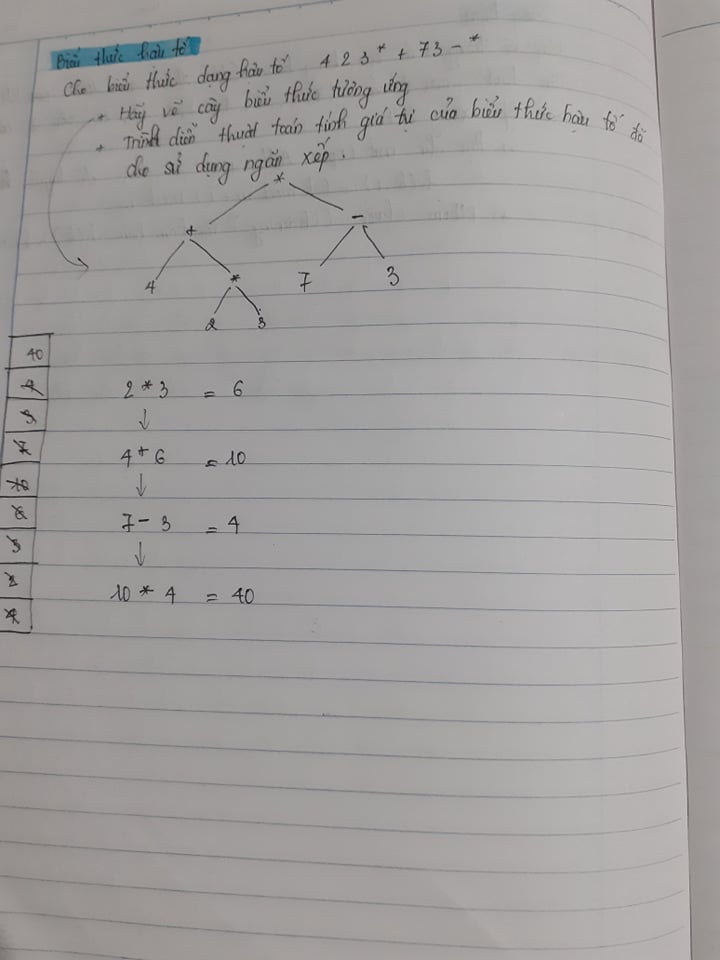 Biểu thức hậu tố
Cho biểu thức dạng hậu tố 4 2 3 * + 7 3 - *
+ Hãy vẽ cây biểu thức tương ứng
+ Trình diễn thuật toán tính giá trị của biểu thức hậu tố đã
cho sử dụng ngăn xếp.
*
+ -
4 * 7 3
2 3
40
4
2 * 3 = 6
↓
3
7
4 + 6 = 10
↓
10
6
7 - 3 = 4
↓
3
2
10 * 4 = 40
4